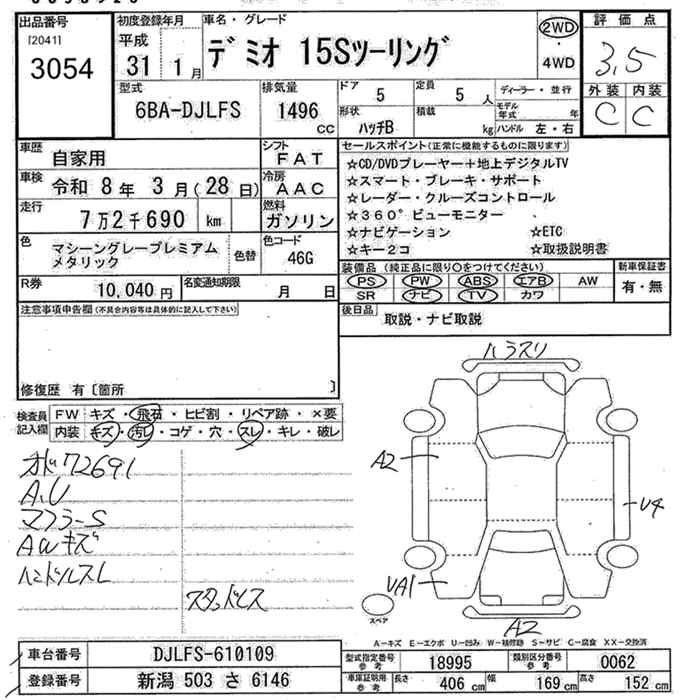 出品番号
[2041]
3054
初度登録年月
平成
31 1月
車名・グレード
デミオ 15Sツーリング
2WD
・
4WD
評価点
3.5
外装 内装
C C
型式
6BA-DJLFS
排気量
1496
cc
ドア
5
定員
5人
形状
ハッチB
積載
kg
ディーラー・並行
モデル年式 年
ハンドル 左・右
車歴
自家用
シフト
FAT
車検
令和 8年 3月(28日)
冷房
AAC
走行
7万2千690 km
燃料
ガソリン
色
マシーングレープレミアム
メタリック
色替
色コード
46G
R券
10,040円
名変通知期限
月 日
セールスポイント(正常に機能するものに限ります)
☆CD/DVDプレーヤー+地上デジタルTV
☆スマート・ブレーキ・サポート
☆レーダー・クルーズコントロール
☆360°ビューモニター
☆ナビゲーション ☆ETC
☆キー2コ ☆取扱説明書
装備品(純正品に限り○をつけてください)
PS PW ABS エアB AW
SR ナビ TV カワ
新車保証書
有・無
後日品
取説・ナビ取説
注意事項申告欄(不具合内容等は具体的に記入して下さい)
修復歴 有〔箇所 〕
検査員
記入欄
FW キズ・飛石・ヒビ割・リペア跡・×要
内装 キズ・汚レ・コゲ・穴・スレ・キレ・破レ
72691
A.U
マフラーS
AWキズ
ハンドルスレ
スタッドレス
ハラスリ
A2
U4
UA1
A2
スペア
A-キズ E-エクボ U-凹み W-補修跡 S-サビ C-腐食 XX-交換済
車台番号
DJLFS-610109
登録番号
新潟 503 さ 6146
型式指定番号
参考
18995
類別区分番号
参考
0062
車庫証明用
参考
長さ
406 cm
幅
169 cm
高さ
152 cm